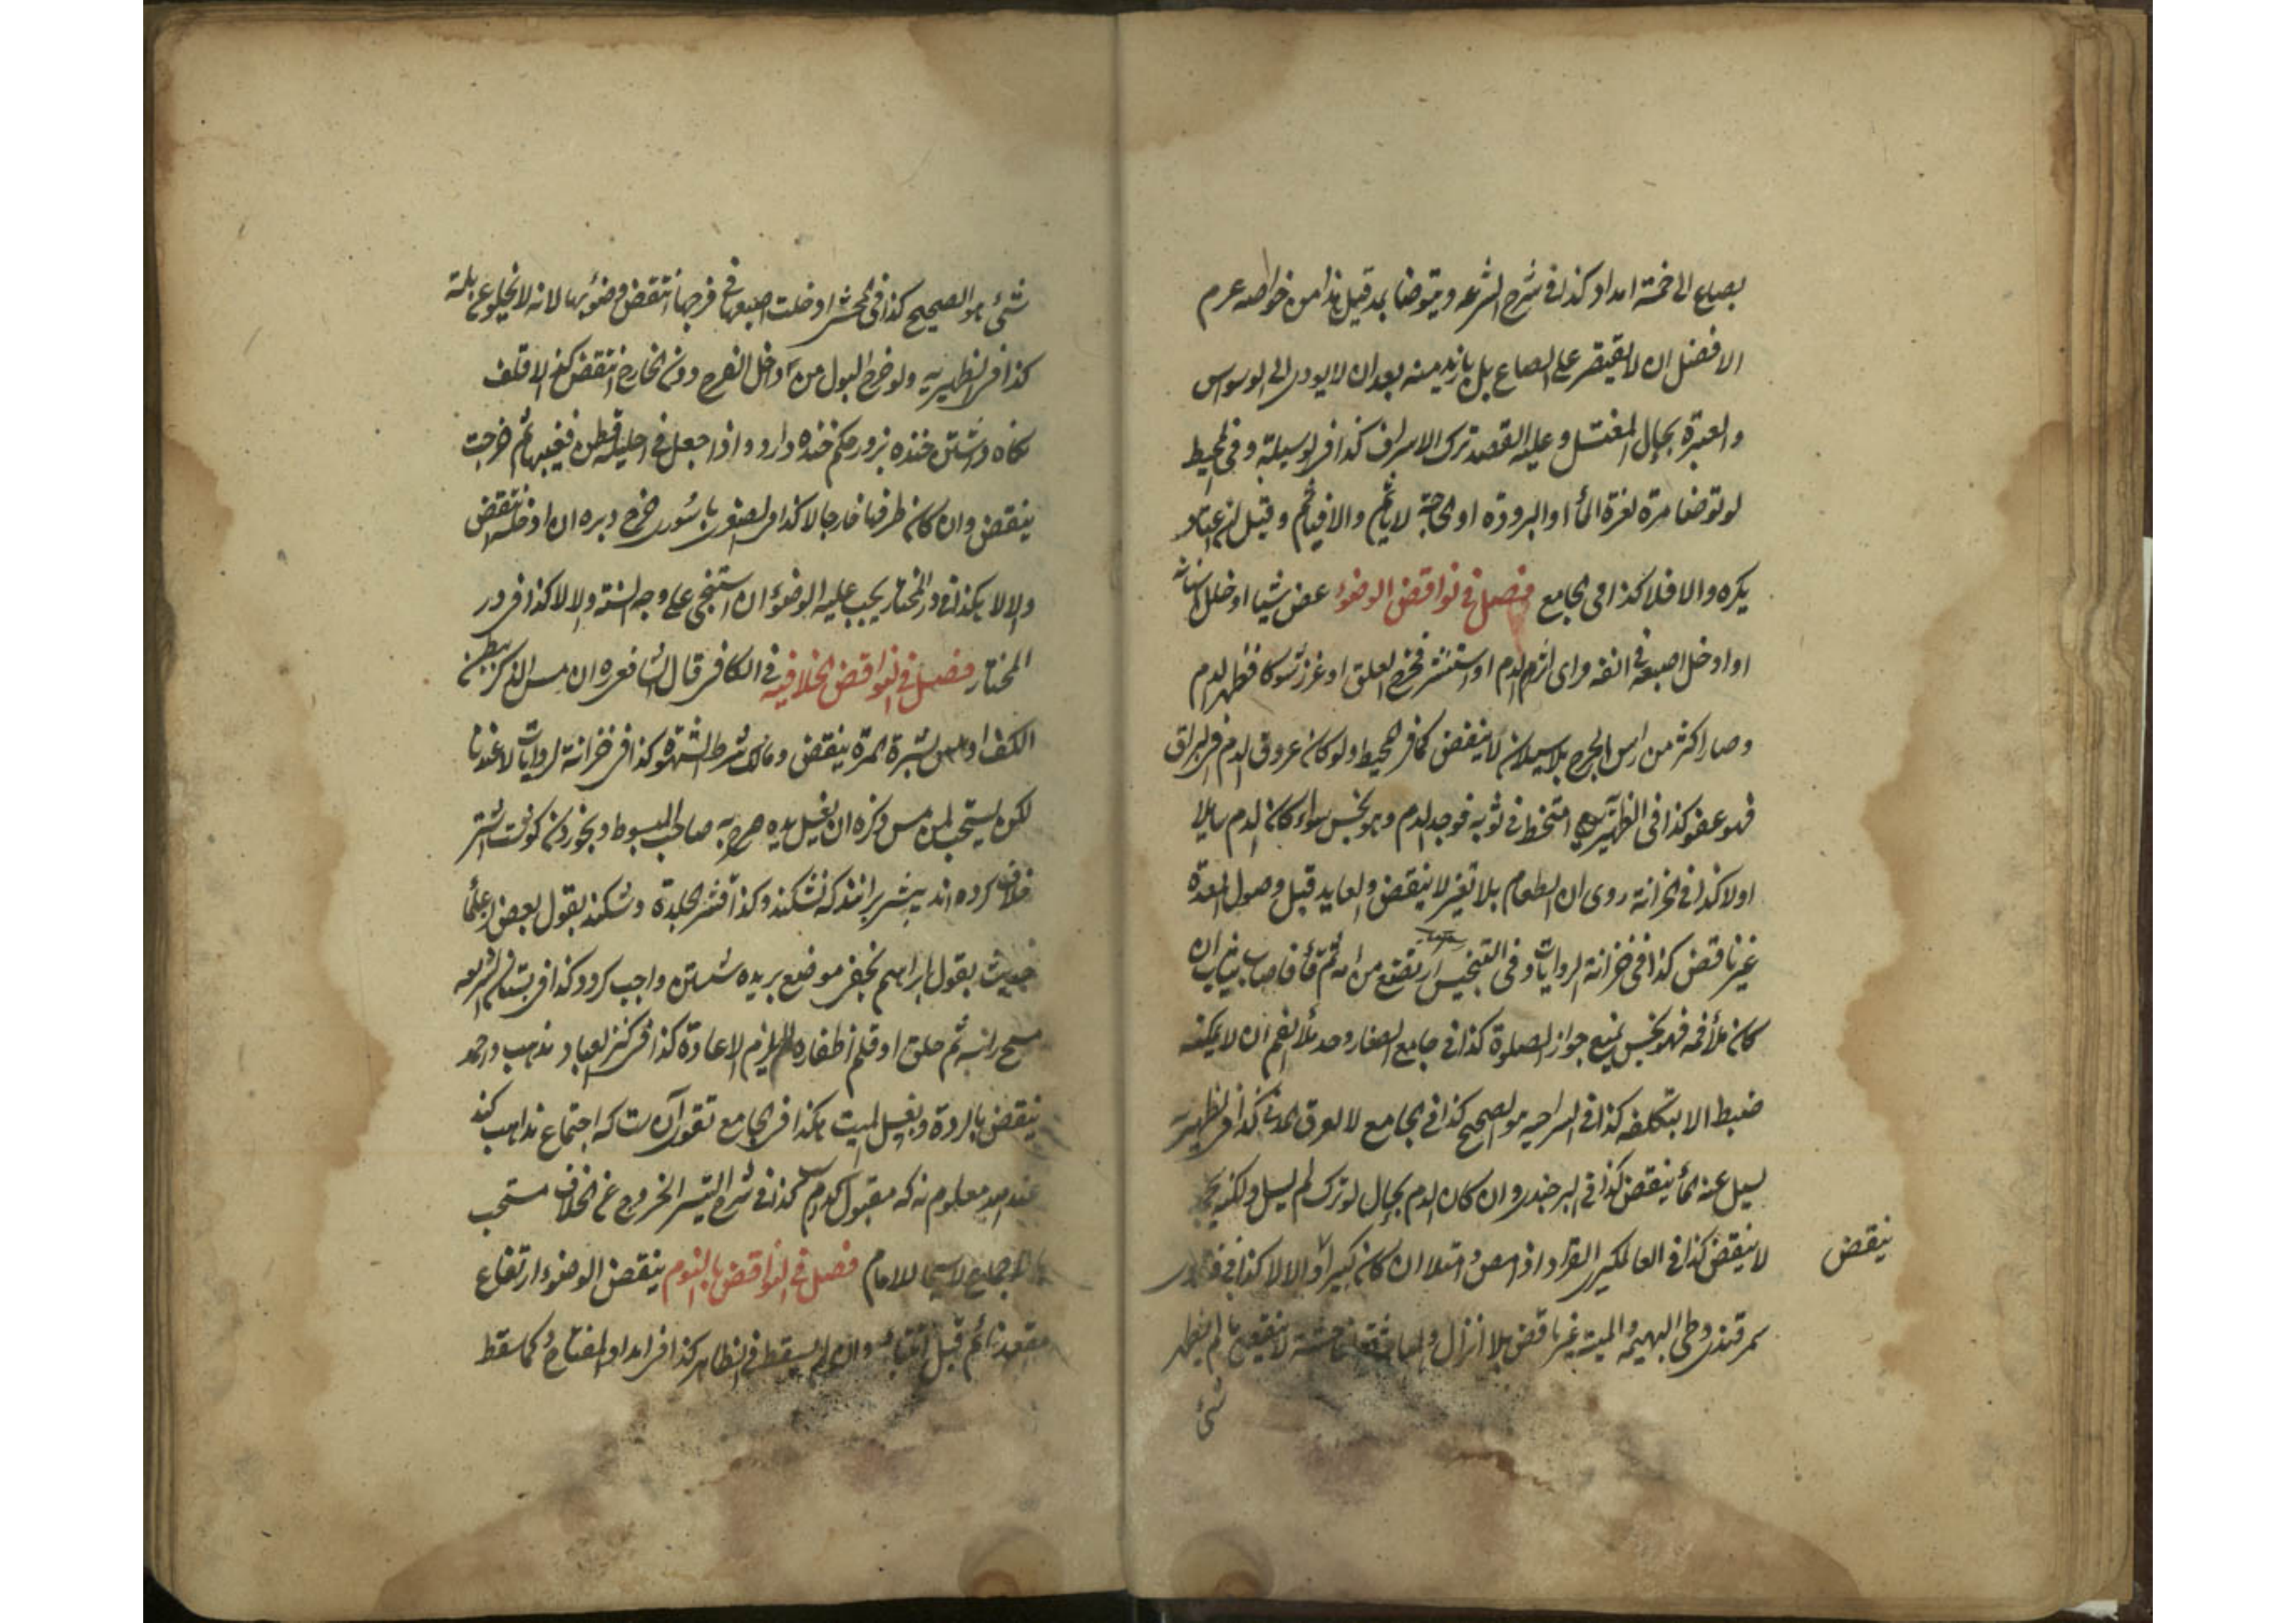 بصاع الى خمسة امداد كذا فى شرح الشرعه ويتوضأ بمد قيل هذا من خواصه عرم
الافضل ان لا يقتصر على الصاع بل يازيد منه بعد ان لا يودى الى الوسواس
والعبرة بحال المغتسل وعليه القصد ترك الاسراف كذا فى الوسيلة وفى المحيط
لو توضأ مرة لعزة الماء او البرودة او الحاجة لا ياثم والا فياثم وقيل ان اعتاد
يكره والا فلا كذا فى الجامع فصل فى نواقض الوضوء عض شيا او خلل اسنانه
او ادخل اصبعه فى انفه وراى اثر الدم او استنثر فخرج العلق او غرز شوكا فظهر الدم
وصار اكثر من راس الجرح بلا سيلان لا ينقض كما فى المحيط ولو كان عروق الدم فى البزاق
فهو عفو كذا فى الظهيرية امتخط فى ثوبه فوجد الدم وهو نجس سواء كان الدم سايلا
او لا كذا فى الخزانة روى ان الطعام بلا تغير لا ينقض والعايد قبل وصول المعدة
غير ناقض كذا فى خزانة الروايات وفى التجنيس ارتضع من امه ثم قاء فاصاب ثياب ان
كان ملأ فمه فهو نجس يمنع جواز الصلوة كذا فى جامع الصغار وحد ملأ الفم ان لا يمكنه
ضبط الا بتكلفه كذا فى السراجيه هو الصحيح كذا فى الجامع لا العرق المدنى كذا فى الظهيرية
يسيل عنه الماء ينقض كذا فى البرجندى وان كان الدم بحال لو ترك لم يسل ولكنه
لا ينقض كذا فى العالمكيرى القراد اذا مص وامتلا ان كان كبيرا والا لا كذا فى
ينقض
سمرقندى وطى البهيمه والميتة غير ناقض بلا انزال والمباشرة الفاحشة لا ينقض ما لم يظهر
شئ
شئ هو الصحيح كذا فى ادخلت اصبعها فى فرجها انتقض وضوءها لانه لا يخلو عن بلة
كذا فى الظهيريه ولو خرج البول من داخل الفرج دون الخارج انتقض كذا الاقلف
نكاه داشتن خنده بزور حكم خنده دارد واذا جعل فى احليله قطن فغيبها ثم خرجت
ينقض وان كان طرفها خارجا لا كذا فى الصغرى باسورى خرج دبره ان ادخله انتقض
والا لا هكذا فى در المختار يجب عليه الوضوء ان استنجى على وجه السنة والا لا كذا فى در
المختار فصل فى النواقض الخلافيه فى الكافى قال الشافعى ره ان مس الذكر ببطن
الكف او مس بشرة المرة ينقض ومالك شرط الشهوة كذا فى خزانة الروايات لا عندنا
لكن يستحب لمن مس ذكره ان يغسل يده صرح به صاحب المبسوط وبخوردن كوشت اشتر
خلاف كرده اند بيشتر برانند كه نشكند وكذا قشر الجلدة وشكند بقول بعض علما
حديث بقول ابراهيم نخعى موضع بريده شستن واجب كردد كذا فى بستان الشريعه
مسح راسه ثم حلق او قلم اظفاره لم يلزم الاعادة كذا فى كنز العباد مذهب احمد
ينقض بالردة وبغسل الميت هكذا فى الجامع تقوى آنست كه اجتماع مذاهب كند
عند الله معلوم نه كه مقبول كدام ست كذا فى شرح التيسير الخروج عن الخلاف مستحب
بالاجماع لا سيما للامام فصل فى النواقض بالنوم ينقض الوضوء ارتفاع
مقعد نائم قبل انتباه وان لم يسقط فى الظاهر كذا فى امداد المفتاح كما سقط